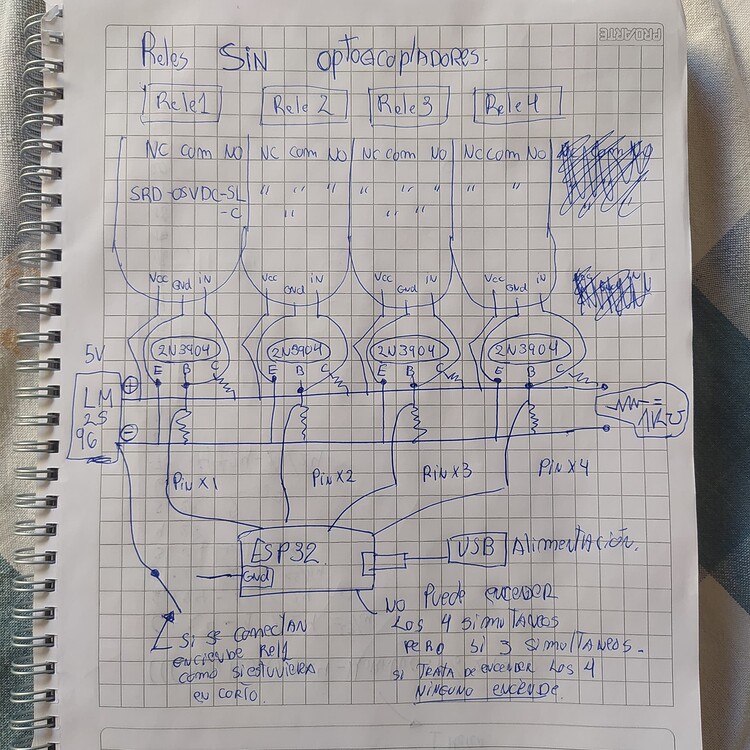 PROARTE
Reles SIN optoacopladores.
Rele1 Rele 2 Rele 3 Rele 4
NC com NO NC com NO NC com NO NC com NO
SRD-05VDC-SL " " " " " " " "
-C " "
Vcc Gnd iN Vcc Gnd iN Vcc Gnd IN Vcc Gnd IN
2N3904 2N3904 2N3904 2N3904
5V E B C E B C E B C E B C
+
LM
25
96
-
1K
Pin X1 Pin X2 Pin X3 Pin X4
ESP32 USB Alimentación.
Gnd
NO Puede encender
Los 4 simultaneos
pero si 3 simultaneos.
si trata de encender los 4
ninguno enciende.
Si se conectan
enciende Rel1
como si estuviera
en corto.